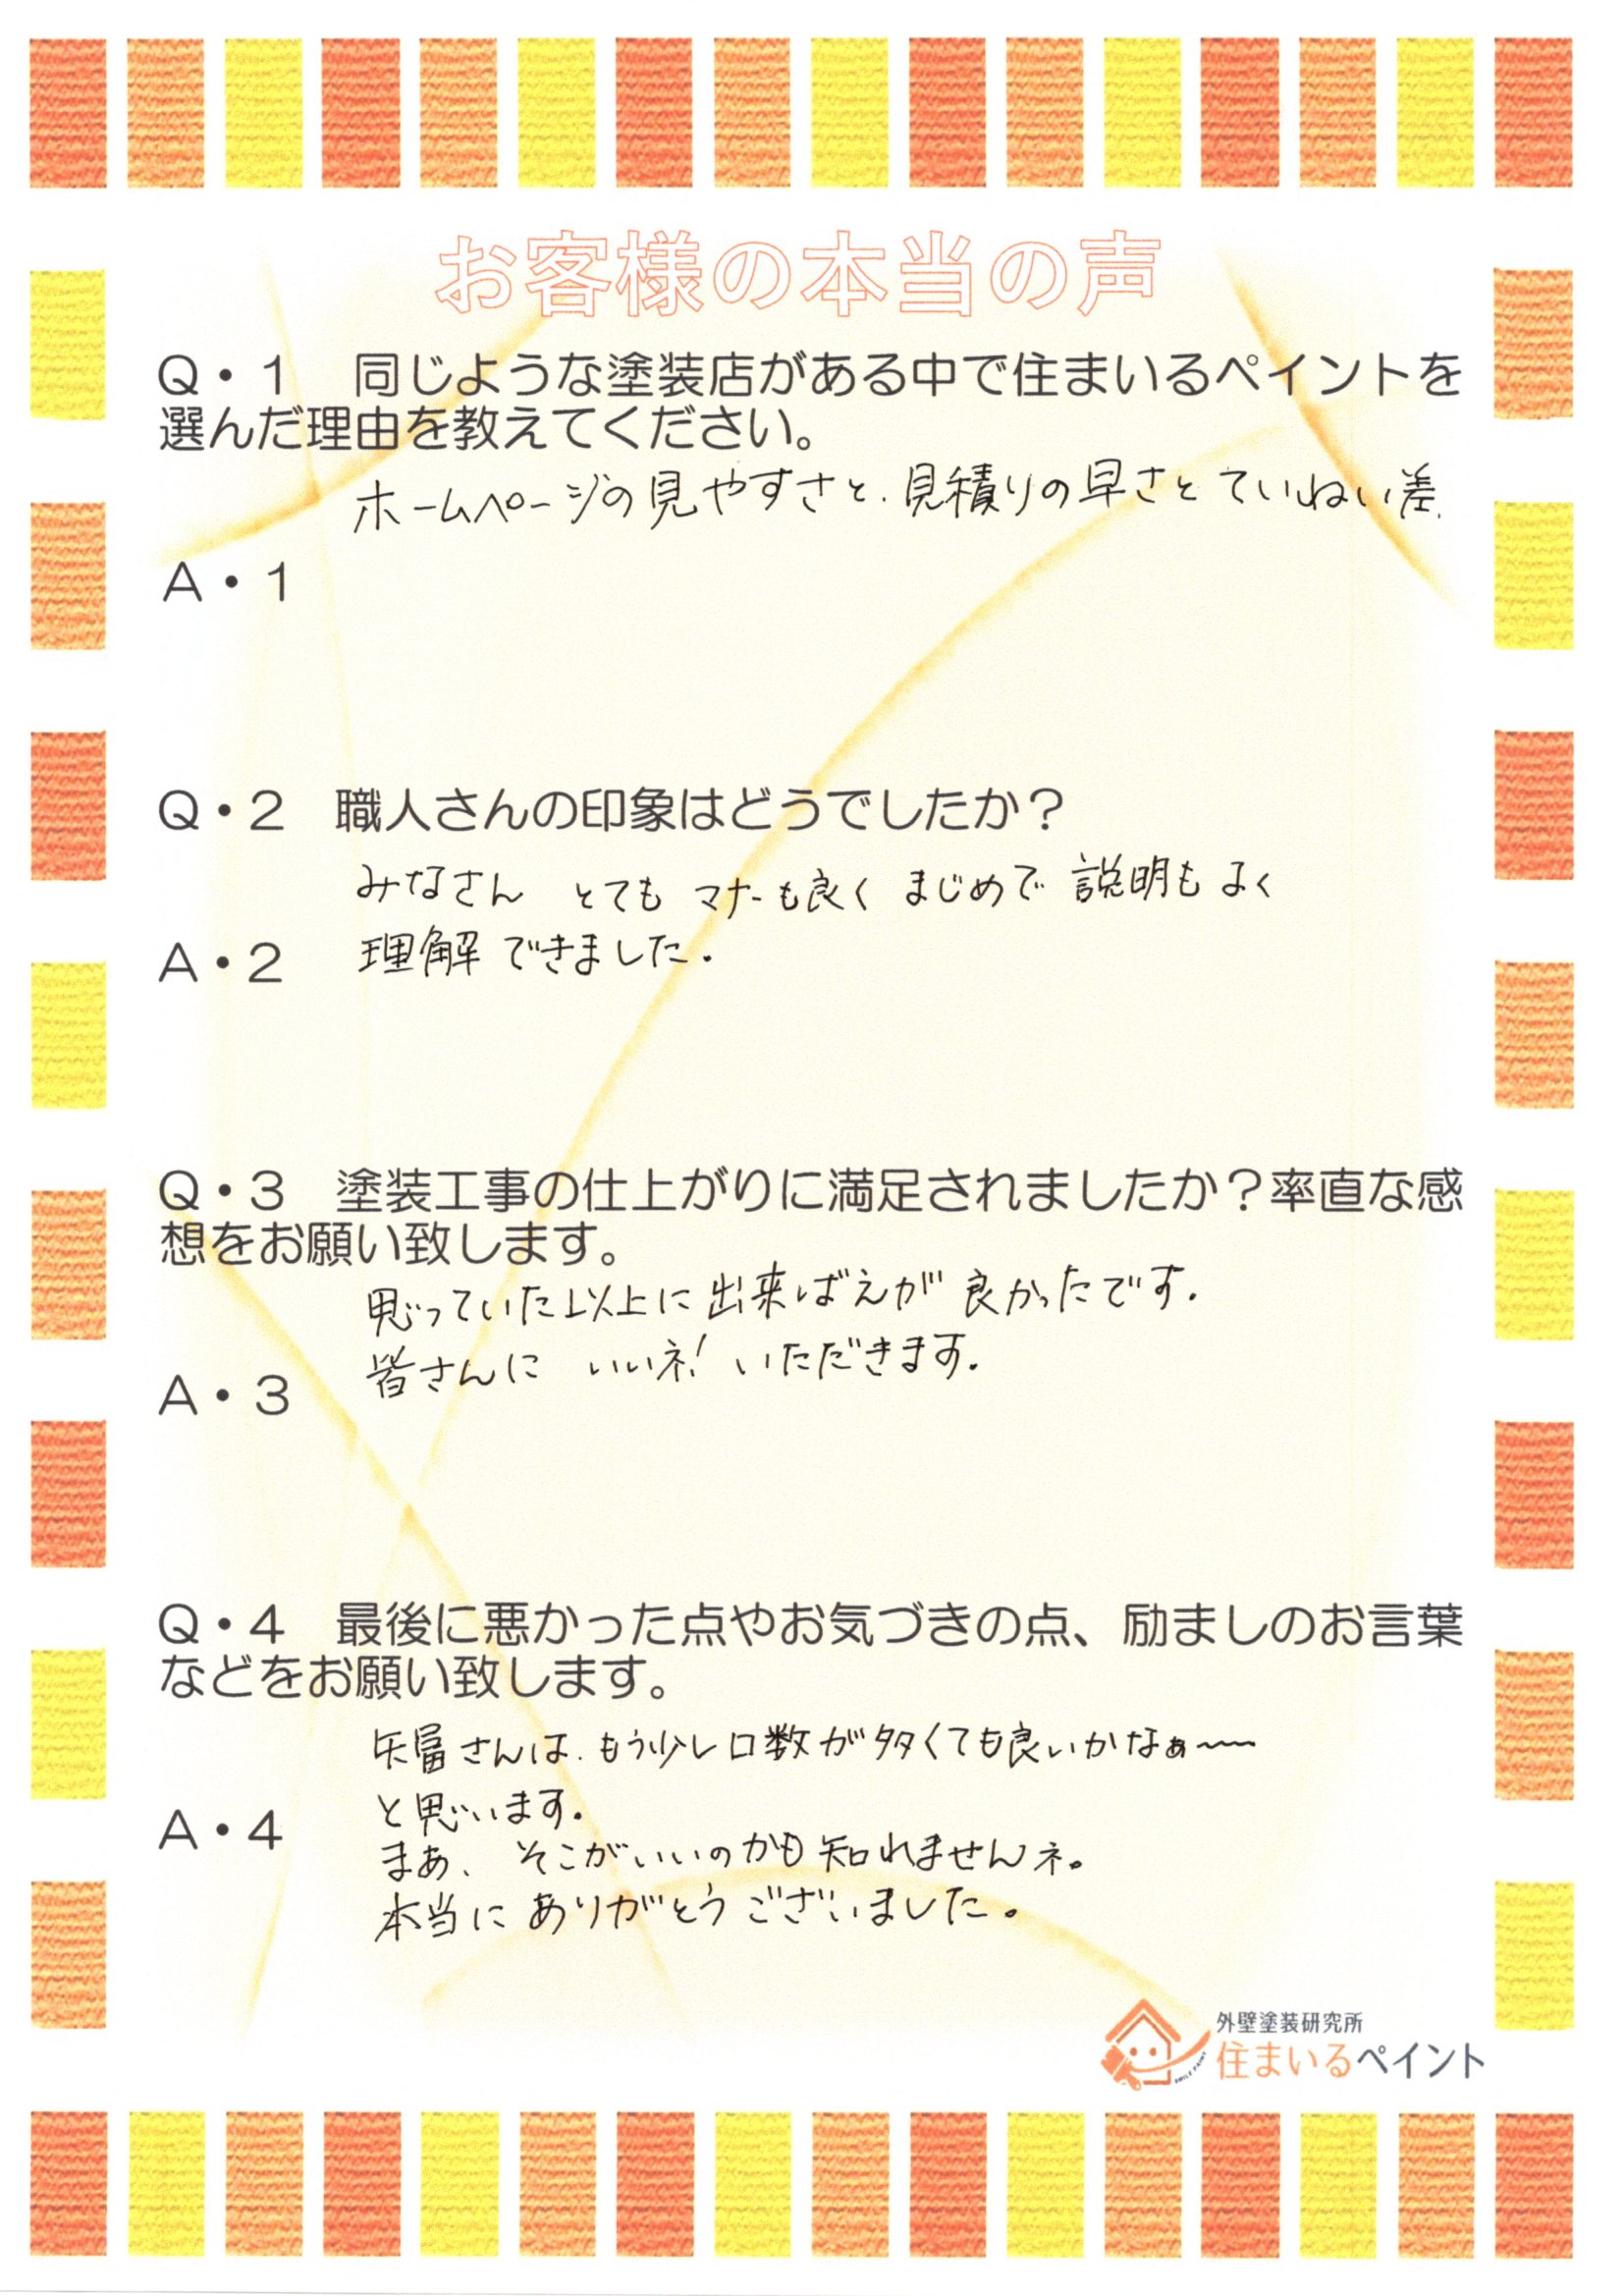 お客様の本当の声
Q・1　同じような塗装店がある中で住まいるペイントを
選んだ理由を教えてください。
ホームページの見やすさと、見積りの早さとていねい差、
A・1
Q・2　職人さんの印象はどうでしたか？
みなさん とても マナーも良く まじめで 説明もよく
A・2 理解できました。
Q・3　塗装工事の仕上がりに満足されましたか？率直な感
想をお願い致します。
思っていた以上に出来ばえが良かったです。
皆さんに いいネ！いただきます。
A・3
Q・4　最後に悪かった点やお気づきの点、励ましのお言葉
などをお願い致します。
矢冨さんは、もう少し口数が多くても良いかなぁ〜
と思います。
A・4
まあ、そこがいいのかも知れませんネ。
本当にありがとうございました。
外壁塗装研究所
住まいるペイント
SMILE PAINT